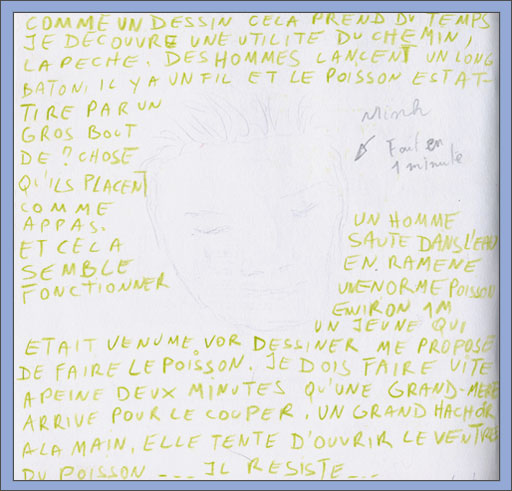 COMME UN DESSIN CELA PREND DU TEMPS
JE DECOUVRE UNE UTILITE DU CHEMIN,
LA PECHE. DES HOMMES LANCENT UN LONG
BATON, IL Y A UN FIL ET LE POISSON EST AT-
TIRE PAR UN
GROS BOUT
DE ? CHOSE
QU'ILS PLACENT
COMME
APPAS.
ET CELA
SEMBLE
FONCTIONNER
Minh
Fait en
1 minute
UN HOMME
SAUTE DANS L'EAU
EN RAMENE
UN ENORME POISSON
ENVIRON 1M
UN JEUNE QUI
ETAIT VENU ME VOR DESSINER ME PROPOSE
DE FAIRE LE POISSON. JE DOIS FAIRE VITE
A PEINE DEUX MINUTES QU'UNE GRAND-MERE
ARRIVE POUR LE COUPER. UN GRAND HACHOR
A LA MAIN, ELLE TENTE D'OUVRIR LE VENTRE
DU POISSON --- IL RESISTE---